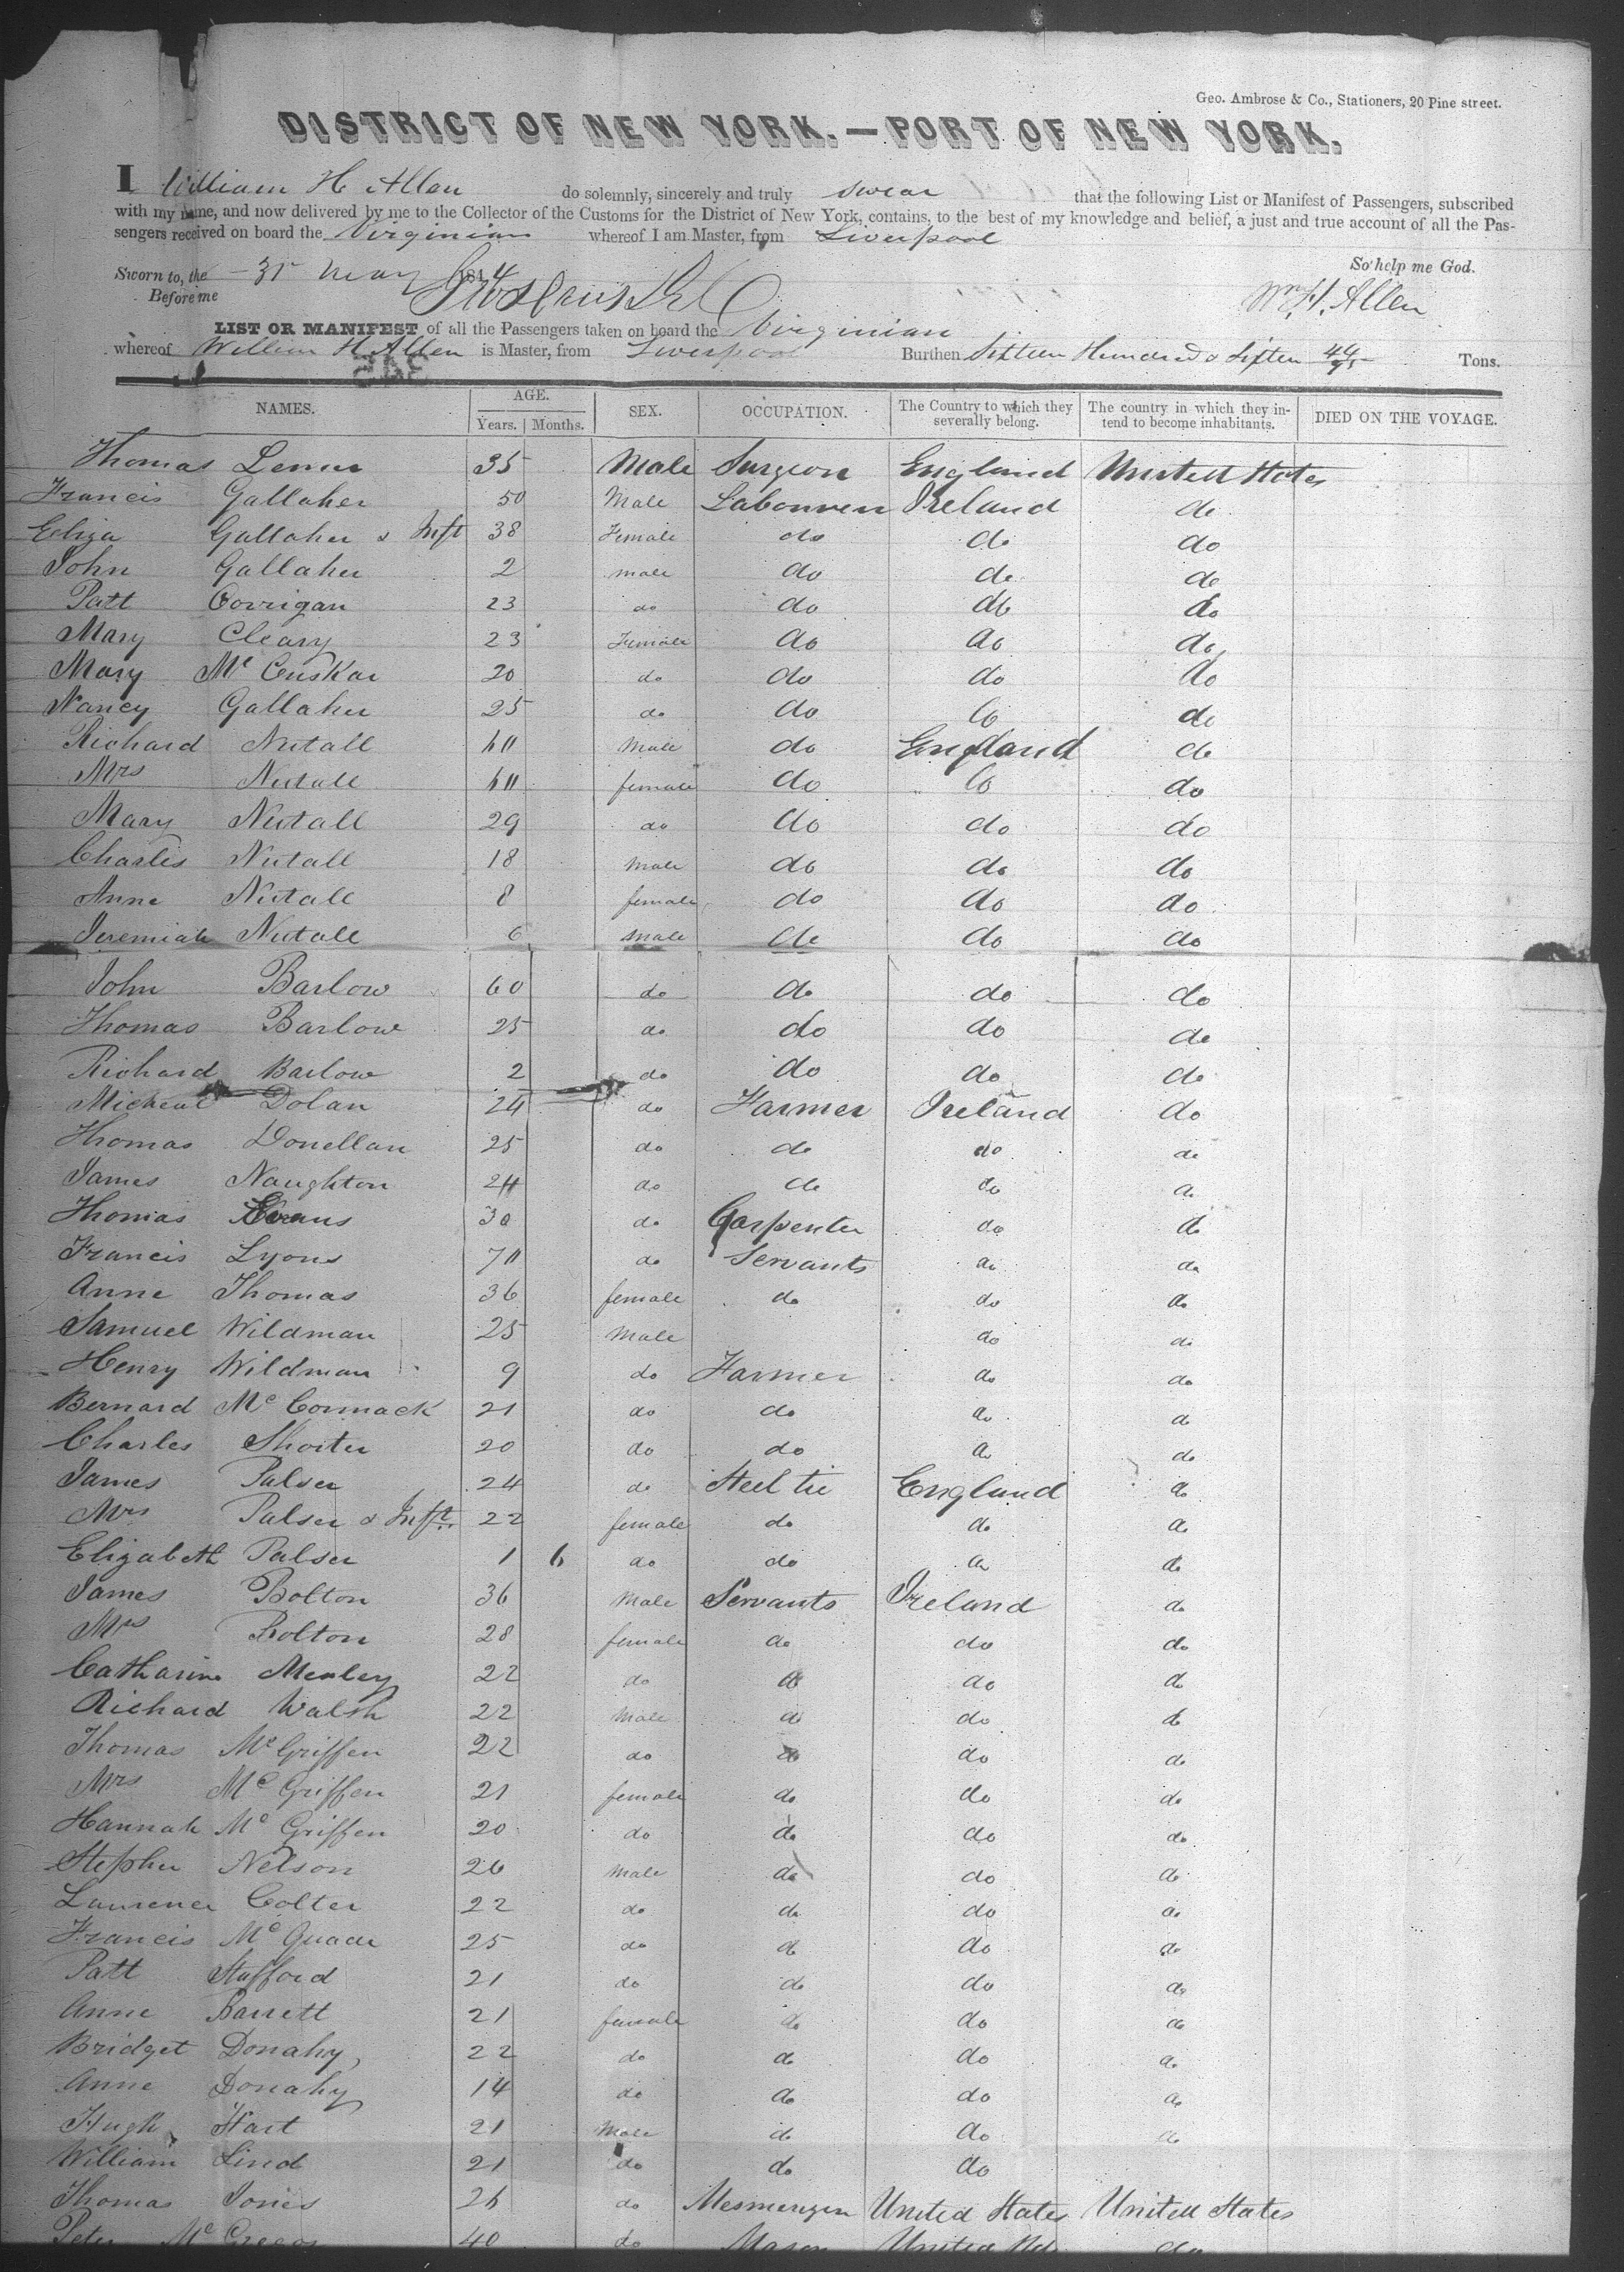 Geo. Ambrose & Co., Stationers, 20 Pine street.
DISTRICT OF NEW YORK.—PORT OF NEW YORK.
I William H Allen do solemnly, sincerely and truly swear that the following List or Manifest of Passengers, subscribed
with my name, and now delivered by me to the Collector of the Customs for the District of New York, contains, to the best of my knowledge and belief, a just and true account of all the Pas-
sengers received on board the Virginian whereof I am Master, from Liverpool
So help me God.
Sworn to, the 31 May 1844
Before me
Wm H. Allen
LIST OR MANIFEST of all the Passengers taken on board the Virginian
whereof William H. Allen is Master, from Liverpool Burthen Sixteen Hundred & Sixteen 44/95 Tons.
NAMES. AGE. Years. Months. SEX. OCCUPATION. The Country to which they severally belong. The country in which they intend to become inhabitants. DIED ON THE VOYAGE.
Thomas 35 Male Surgeon England United States
Francis Gallaher 50 Male Labourers Ireland do
Eliza Gallaher & Inft 38 Female do do do
John Gallaher 2 male do do do
Patt Corrigan 23 do do do do
Mary Cleary 23 Female do do do
Mary Mc Cuskar 20 do do do do
Nancy Gallaher 25 do do do do
Richard Nutall Male do England do
Mrs Nutall female do do do
Mary Nutall 29 do do do do
Charles Nutall 18 Male do do do
Anne Nutall 8 female do do do
Jeremiah Nutall 6 Male do do do
John Barlow 60 do do do do
Thomas Barlow 25 do do do do
Richard Barlow 2 do do do do
Micheal Dolan 24 do Farmer Ireland do
Thomas Donellan 25 do do do do
James Naughton 24 do do do do
Thomas Evans 30 do Carpenter do do
Francis Lyons do Servants do do
Anne Thomas 36 female do do do
Samuel Wildman 25 Male do do
Henry Wildman 9 do Farmer do do
Bernard Mc Cormack 21 do do do do
Charles Shorter 20 do do do do
James Palser 24 do England do
Mrs Palser & Inft. 22 female do do do
Elizabeth Palser 1 6 do do do do
James Bolton 36 Male Servants Ireland do
Mrs Bolton 28 female do do do
Catharine Menley 22 do do do do
Richard Walsh 22 Male do do do
Thomas Mc Griffen 22 do do do do
Mrs Mc Griffen 21 female do do do
Hannah Mc Griffen 20 do do do do
Stephen Nelson 26 Male do do do
Laurence Colter 22 do do do do
Francis Mc Quade 25 do do do do
Patt Stafford 21 do do do do
Anne Barrett 21 female do do do
Bridget Donahy 22 do do do do
Anne Donahy 14 do do do do
Hugh Hart 21 Male do do do
William Lind 21 do do do
Thomas Jones 26 do United States United States
Peter Mc Gregor 40 do Mason United do